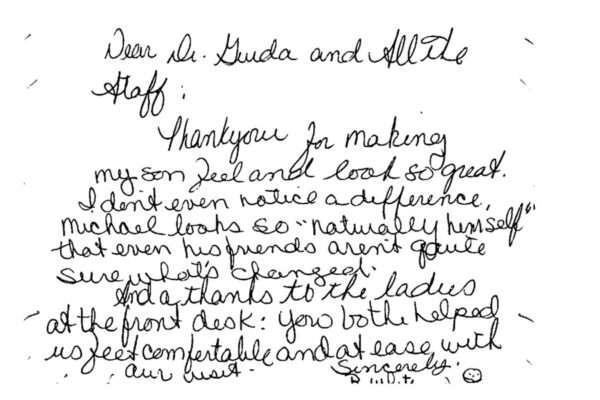 Dear Dr. Guida and All The
Staff:
Thankyou for making
my son feel and look so great.
I don't even notice a difference,
Michael looks so "naturally himself"
that even his friends aren't quite
sure what's changed.
And a thanks to the ladies
at the front desk: you both helped
us feel comfortable and at ease with
our visit.
Sincerely,